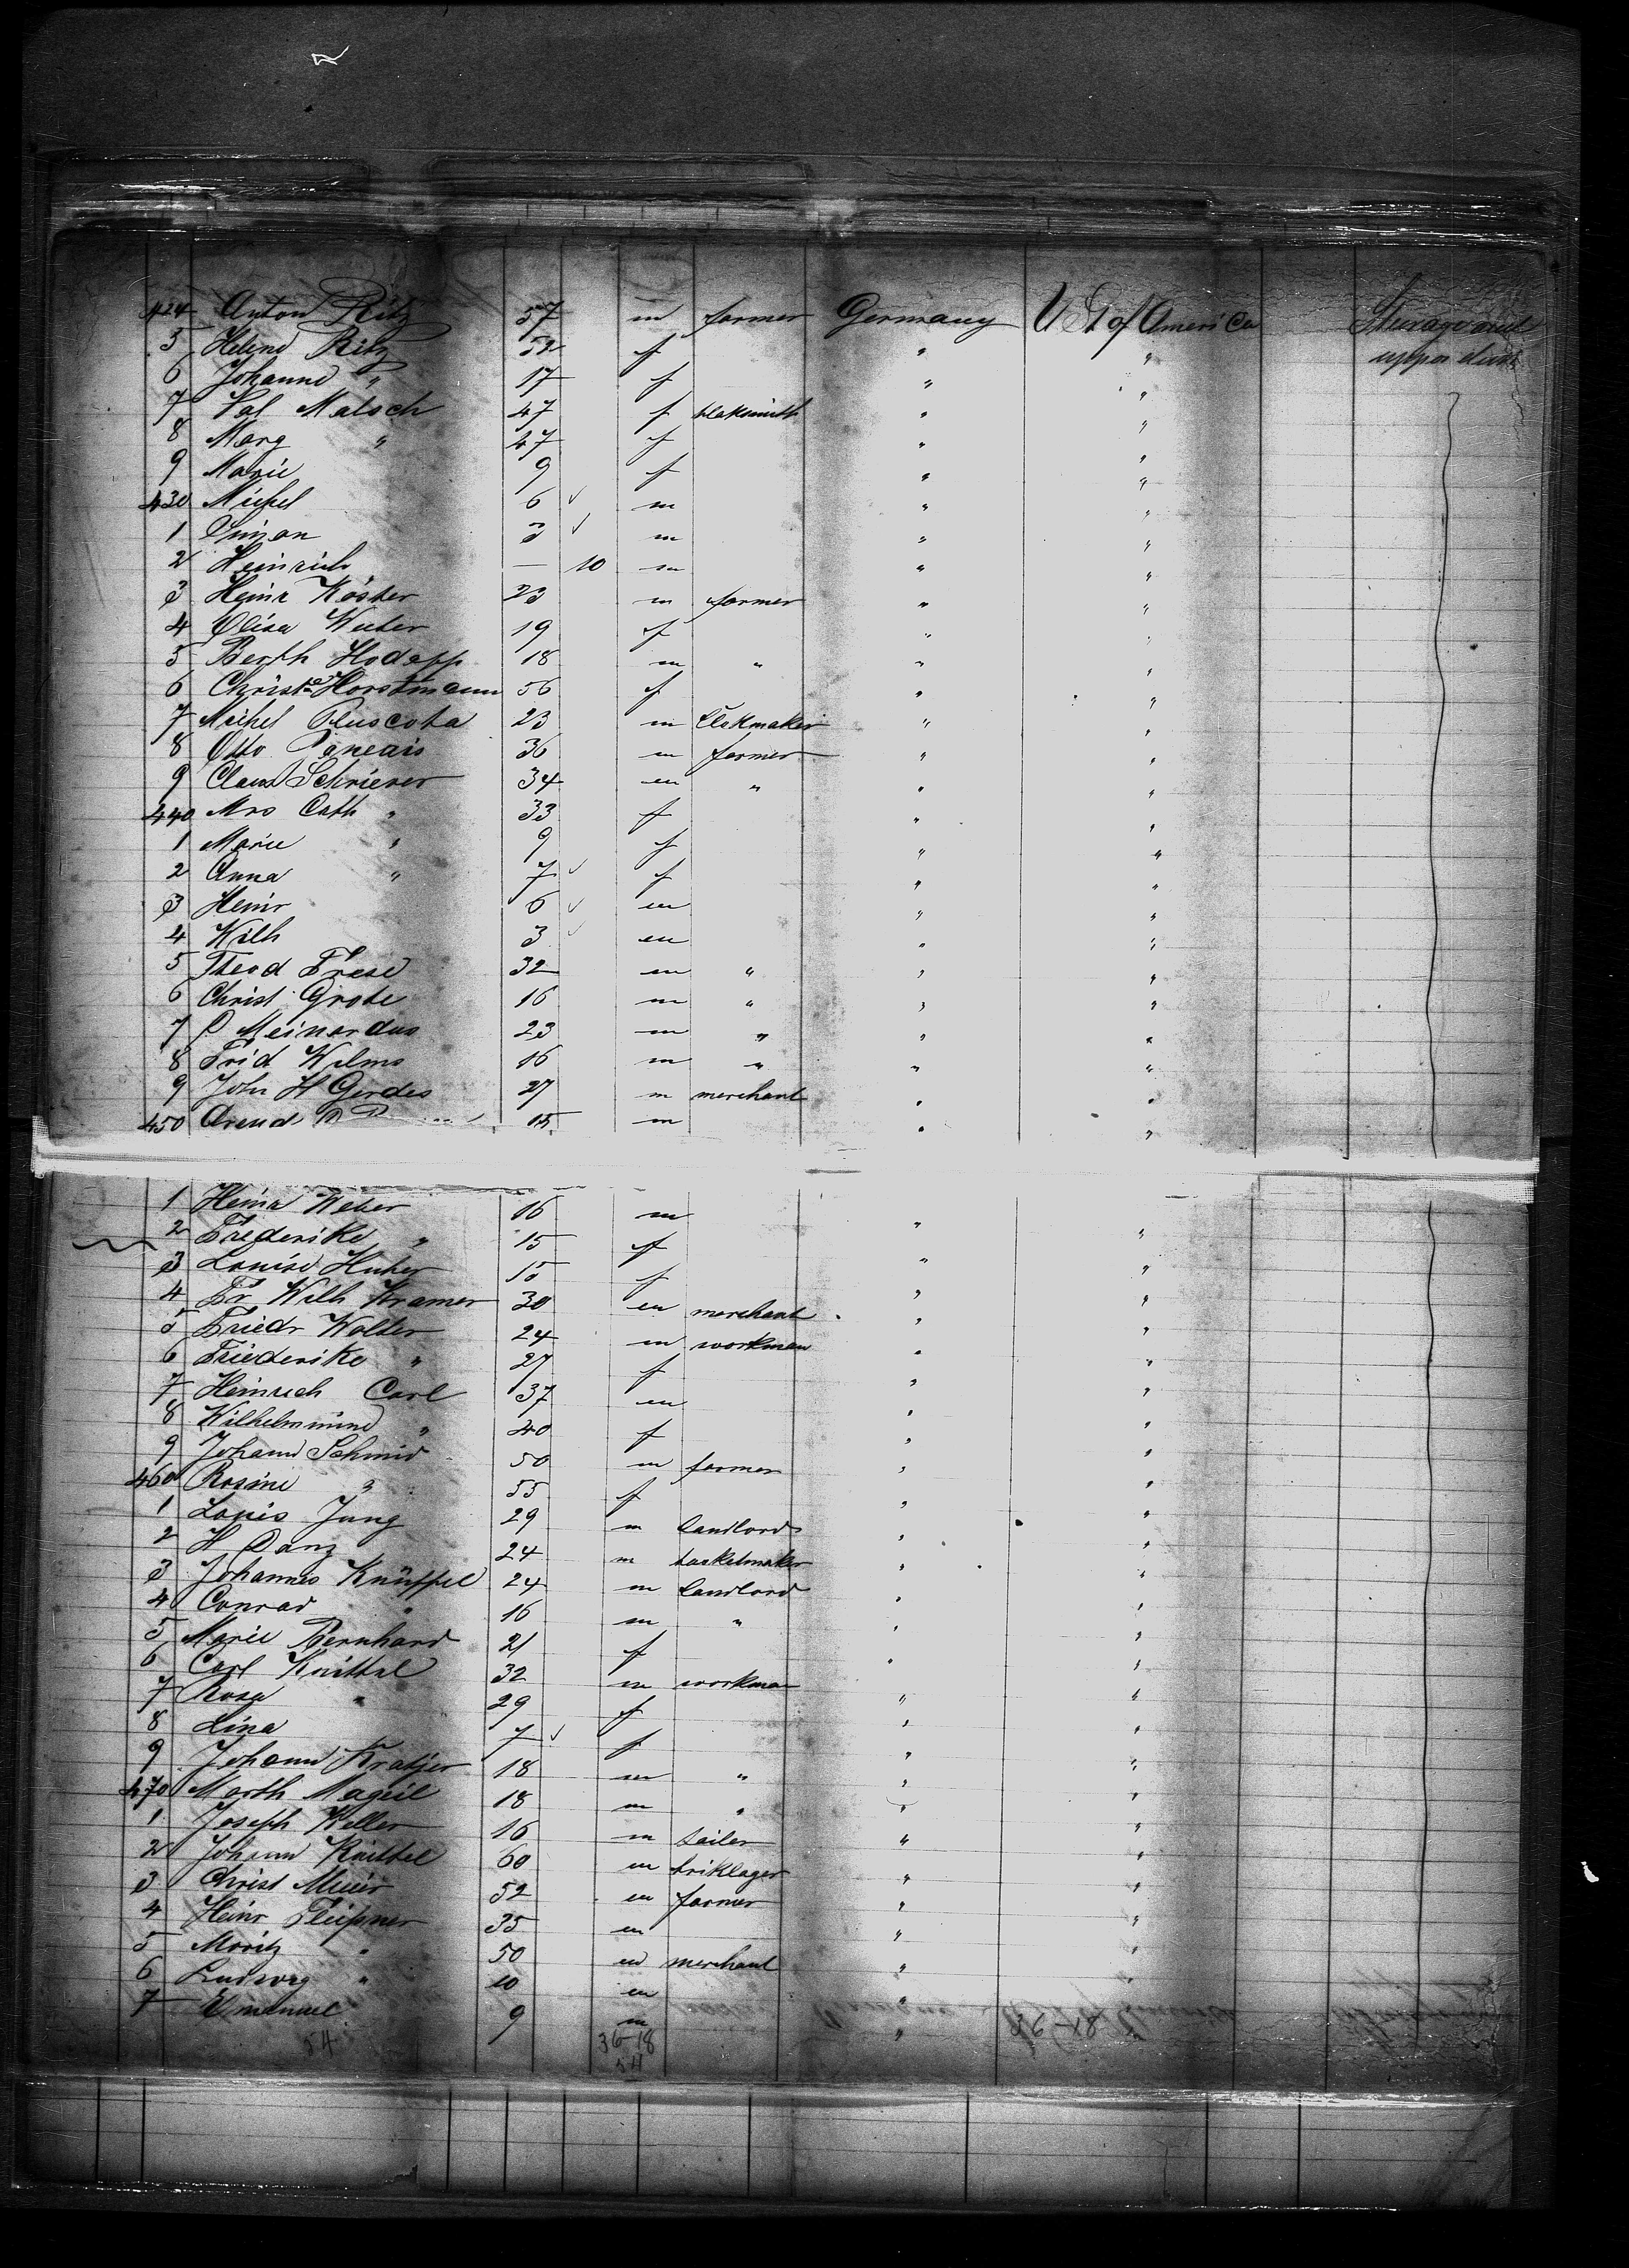 424 Anton Ritz 57 m farmer Germany U St of America
5 Helene Ritz 52 f " "
6 Johanne " 17 f " "
7 Val Matsch 47 f blaksmith " "
8 Marg " 47 f " "
9 Marie 9 f " "
430 Michel 6 ✓ m " "
1 Simon 3 ✓ m " "
2 Heinrich — 10 m " "
3 Heinr Köster 23 m farmer " "
4 Elisa 19 f " "
5 Berth Hodapp 18 m " " "
6 Christe Horstmann 56 f " "
7 Michel Pluscota 23 m Clokmaker " "
8 Otto 36 m farmer " "
9 Claus Schriever 34 m " " "
440 Mrs Cath " 33 f " "
1 Marie " 9 f " "
2 Anna " 7 ✓ f " "
3 Heinr 6 ✓ m " "
4 Wilh 3 ✓ m " "
5 Theod Frese 32 m " " "
6 Christ Grote 16 m " " "
7 Meinardus 23 m " " "
8 Frid Wilms 16 m " " "
9 John H Gerdes 27 m merchant " "
450 Arend 15 m " "
1 Heinr Weber 16 m " "
2 Frederike " 15 f " "
3 Louise Huber 15 f " "
4 Fr Wilh Kramer 30 m merchant " "
5 Friedr Wolter 24 m workman " "
6 Friederike " 27 f " "
7 Heinrich Carl 37 m " "
8 Wilhelmine " 40 f " "
9 Johann Schmid 50 m farmer " "
460 Rosine " 55 f " "
1 Louis Jung 29 m landlord " "
2 H Danz 24 m basketmaker " "
3 Johannes Knüppel 24 m landlord " "
4 Conrad " 16 m " " "
5 Marie Bernhard 21 f " "
6 Carl Knittel 32 m workman " "
7 Rosa " 29 f " "
8 Lina 7 ✓ f " "
9 Johann Kratzer 18 m " " "
470 Marth 18 m " " "
1 Joseph Keller 16 m tailer " "
2 Johann Knittel 60 m briklager " "
3 Christ Meier 52 m farmer " "
4 Heinr 35 m " "
5 Moritz " 50 m merchant " "
6 Ludwig " 10 m " "
7 Emanuel 9 m "
54 36-18
54